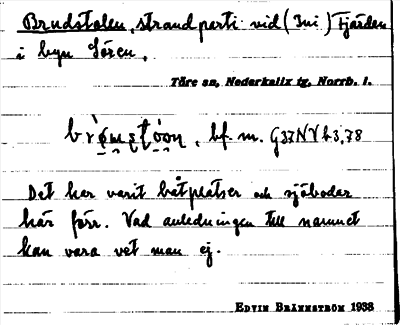 Brudstolen, strandparti vid (Ini) Fjärden
i byn Sören.
Töre sn, Nederkalix tg, Norrb. l.
bf. m. G37NV h3,78
Det har varit båtplatser och sjöbodar
här förr. Vad anledningen till namnet
kan vara vet man ej.
EDVIN BRÄNNSTRÖM 1938